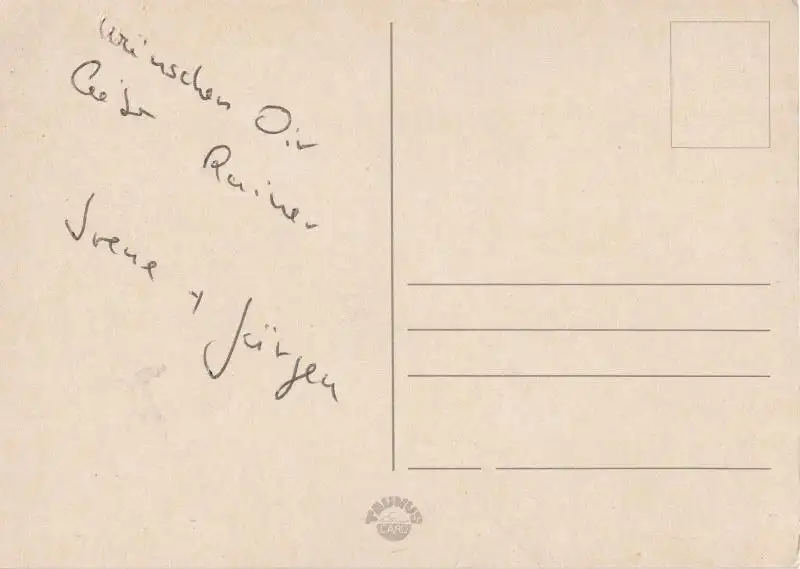 wünschen Dir
Lieber Rainer
Irene + Jürgen
TAUNUS
CARD